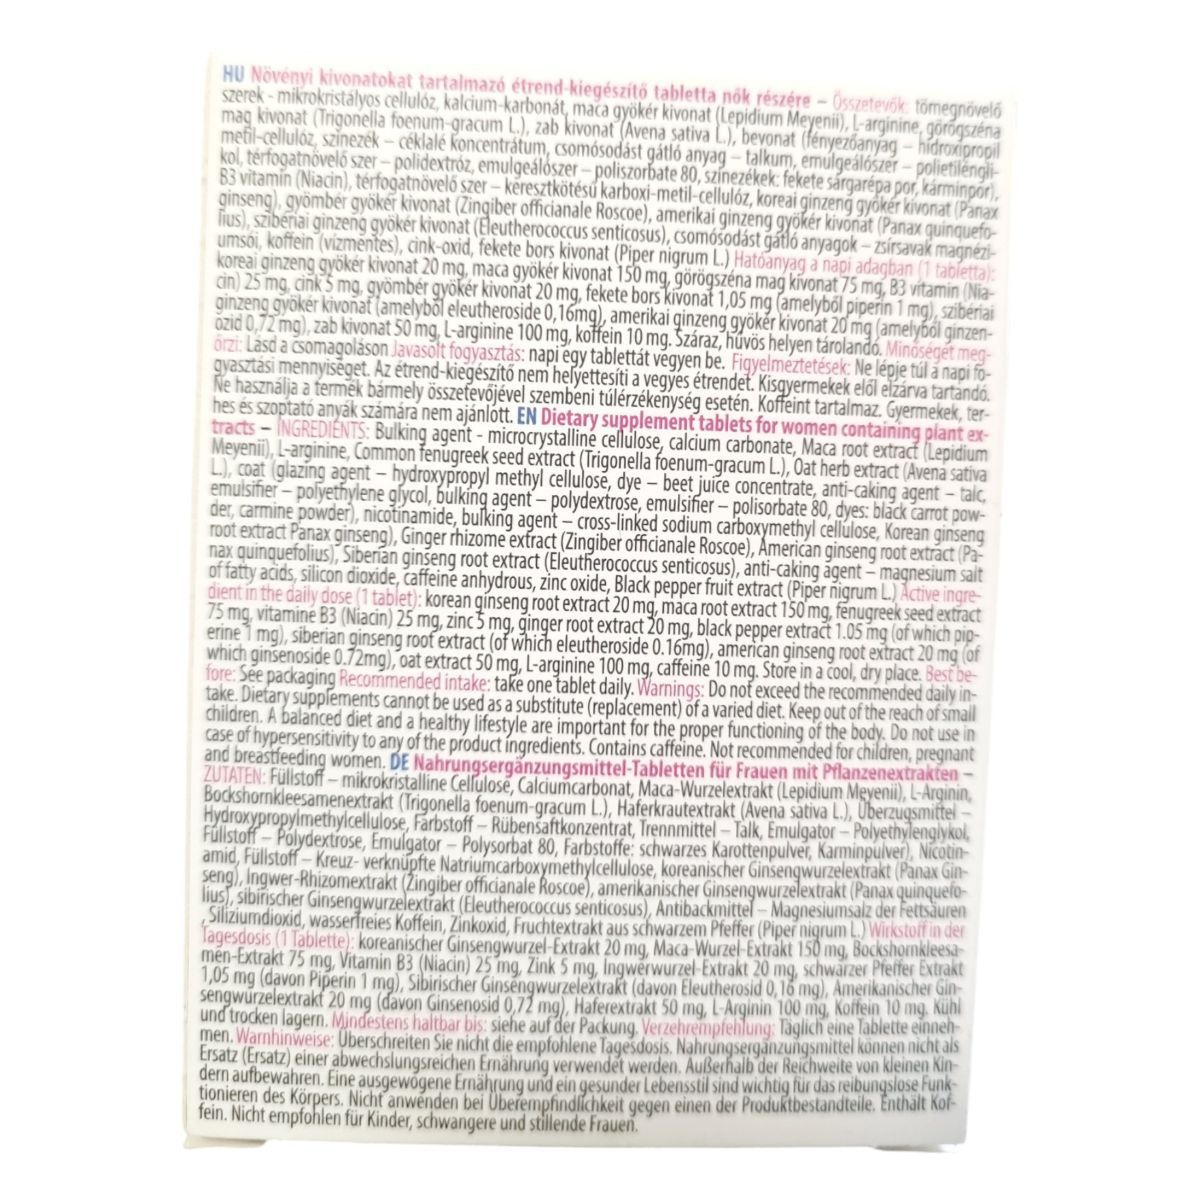 HU Növényi kivonatokat tartalmazó étrend-kiegészítő tabletta nők részére – Összetevők: tömegnövelő
szerek - mikrokristályos cellulóz, kalcium-karbonát, maca gyökér kivonat (Lepidium Meyenii), L-arginine, görögszéna
mag kivonat (Trigonella foenum-gracum L.), zab kivonat (Avena sativa L.), bevonat (fényezőanyag – hidroxipropil
metil-cellulóz, színezék – céklalé koncentrátum, csomósodást gátló anyag – talkum, emulgeálószer – polietiléngli-
kol, térfogatnövelő szer – polidextróz, emulgeálószer – poliszorbate 80, színezékek: fekete sárgarépa por, kárminpor),
B3 vitamin (Niacin), térfogatnövelő szer – keresztkötésű karboxi-metil-cellulóz, koreai ginzeng gyökér kivonat (Panax
ginseng), gyömbér gyökér kivonat (Zingiber officianale Roscoe), amerikai ginzeng gyökér kivonat (Panax quinquefo-
lius), szibériai ginzeng gyökér kivonat (Eleutherococcus senticosus), csomósodást gátló anyagok – zsírsavak magnézi-
umsói, koffein (vízmentes), cink-oxid, fekete bors kivonat (Piper nigrum L.) Hatóanyag a napi adagban (1 tabletta):
koreai ginzeng gyökér kivonat 20 mg, maca gyökér kivonat 150 mg, görögszéna mag kivonat 75 mg, B3 vitamin (Nia-
cin) 25 mg, cink 5 mg, gyömbér gyökér kivonat 20 mg, fekete bors kivonat 1,05 mg (amelyből piperin 1 mg), szibériai
ginzeng gyökér kivonat (amelyből eleutheroside 0,16mg), amerikai ginzeng gyökér kivonat 20 mg (amelyből ginzen-
ozid 0,72 mg), zab kivonat 50 mg, L-arginine 100 mg, koffein 10 mg. Száraz, hűvös helyen tárolandó. Minőségét meg-
őrzi: Lásd a csomagoláson Javasolt fogyasztás: napi egy tablettát vegyen be. Figyelmeztetések: Ne lépje túl a napi fo-
gyasztási mennyiséget. Az étrend-kiegészítő nem helyettesíti a vegyes étrendet. Kisgyermekek elől elzárva tartandó.
Ne használja a termék bármely összetevőjével szembeni túlérzékenység esetén. Koffeint tartalmaz. Gyermekek, ter-
hes és szoptató anyák számára nem ajánlott. EN Dietary supplement tablets for women containing plant ex-
tracts – INGREDIENTS: Bulking agent - microcrystalline cellulose, calcium carbonate, Maca root extract (Lepidium
Meyenii), L-arginine, Common fenugreek seed extract (Trigonella foenum-gracum L.), Oat herb extract (Avena sativa
L.), coat (glazing agent – hydroxypropyl methyl cellulose, dye – beet juice concentrate, anti-caking agent – talc,
emulsifier – polyethylene glycol, bulking agent – polydextrose, emulsifier – polisorbate 80, dyes: black carrot pow-
der, carmine powder), nicotinamide, bulking agent – cross-linked sodium carboxymethyl cellulose, Korean ginseng
root extract Panax ginseng), Ginger rhizome extract (Zingiber officianale Roscoe), American ginseng root extract (Pa-
nax quinquefolius), Siberian ginseng root extract (Eleutherococcus senticosus), anti-caking agent – magnesium salt
of fatty acids, silicon dioxide, caffeine anhydrous, zinc oxide, Black pepper fruit extract (Piper nigrum L.) Active ingre-
dient in the daily dose (1 tablet): korean ginseng root extract 20 mg, maca root extract 150 mg, fenugreek seed extract
75 mg, vitamine B3 (Niacin) 25 mg, zinc 5 mg, ginger root extract 20 mg, black pepper extract 1.05 mg (of which pip-
erine 1 mg), siberian ginseng root extract (of which eleutheroside 0.16mg), american ginseng root extract 20 mg (of
which ginsenoside 0.72mg), oat extract 50 mg, L-arginine 100 mg, caffeine 10 mg. Store in a cool, dry place. Best be-
fore: See packaging Recommended intake: take one tablet daily. Warnings: Do not exceed the recommended daily in-
take. Dietary supplements cannot be used as a substitute (replacement) of a varied diet. Keep out of the reach of small
children. A balanced diet and a healthy lifestyle are important for the proper functioning of the body. Do not use in
case of hypersensitivity to any of the product ingredients. Contains caffeine. Not recommended for children, pregnant
and breastfeeding women. DE Nahrungsergänzungsmittel-Tabletten für Frauen mit Pflanzenextrakten –
ZUTATEN: Füllstoff – mikrokristalline Cellulose, Calciumcarbonat, Maca-Wurzelextrakt (Lepidium Meyenii), L-Arginin,
Bockshornkleesamenextrakt (Trigonella foenum-gracum L.), Haferkrautextrakt (Avena sativa L.), Überzugsmittel –
Hydroxypropylmethylcellulose, Farbstoff – Rübensaftkonzentrat, Trennmittel – Talk, Emulgator – Polyethylenglykol,
Füllstoff – Polydextrose, Emulgator – Polysorbat 80, Farbstoffe: schwarzes Karottenpulver, Karminpulver), Nicotin-
amid, Füllstoff – Kreuz- verknüpfte Natriumcarboxymethylcellulose, koreanischer Ginsengwurzelextrakt (Panax Gin-
seng), Ingwer-Rhizomextrakt (Zingiber officianale Roscoe), amerikanischer Ginsengwurzelextrakt (Panax quinquefo-
lius), sibirischer Ginsengwurzelextrakt (Eleutherococcus senticosus), Antibackmittel – Magnesiumsalz der Fettsäuren
, Siliziumdioxid, wasserfreies Koffein, Zinkoxid, Fruchtextrakt aus schwarzem Pfeffer (Piper nigrum L.) Wirkstoff in der
Tagesdosis (1 Tablette): koreanischer Ginsengwurzel-Extrakt 20 mg, Maca-Wurzel-Extrakt 150 mg, Bockshornkleesa-
men-Extrakt 75 mg, Vitamin B3 (Niacin) 25 mg, Zink 5 mg, Ingwerwurzel-Extrakt 20 mg, schwarzer Pfeffer Extrakt
1,05 mg (davon Piperin 1 mg), Sibirischer Ginsengwurzelextrakt (davon Eleutherosid 0,16 mg), Amerikanischer Gin-
sengwurzelextrakt 20 mg (davon Ginsenosid 0,72 mg), Haferextrakt 50 mg, L-Arginin 100 mg, Koffein 10 mg. Kühl
und trocken lagern. Mindestens haltbar bis: siehe auf der Packung. Verzehrempfehlung: Täglich eine Tablette einneh-
men. Warnhinweise: Überschreiten Sie nicht die empfohlene Tagesdosis. Nahrungsergänzungsmittel können nicht als
Ersatz (Ersatz) einer abwechslungsreichen Ernährung verwendet werden. Außerhalb der Reichweite von kleinen Kin-
dern aufbewahren. Eine ausgewogene Ernährung und ein gesunder Lebensstil sind wichtig für das reibungslose Funk-
tionieren des Körpers. Nicht anwenden bei Überempfindlichkeit gegen einen der Produktbestandteile. Enthält Kof-
fein. Nicht empfohlen für Kinder, schwangere und stillende Frauen.